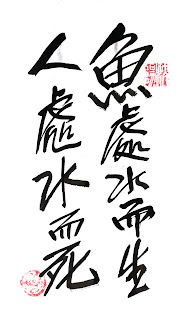 魚處水而生
人處水而死